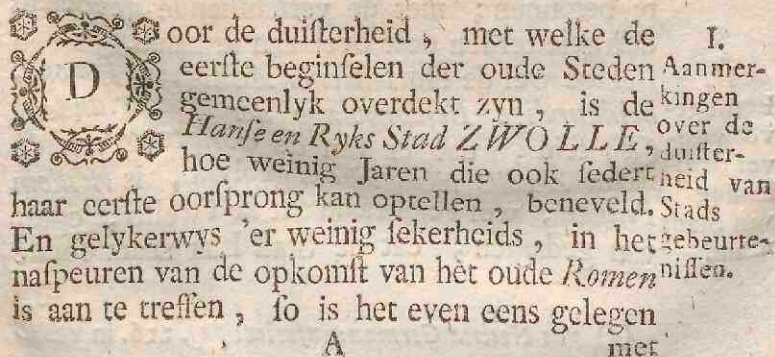 Door de duiſterheid, met welke de
eerſte beginſelen der oude Steden
gemeenlyk overdekt zyn, is de
Hanſe en Ryks Stad ZWOLLE,
hoe weinig Jaren die ook ſedert
haar eerſte oorſprong kan optellen, beneveld.
En gelykerwys 'er weinig ſekerheids, in het
naſpeuren van de opkomſt van het oude Romen
is aan te treffen, ſo is het even eens gelegen
A
met
I.
Aanmer-
kingen
over de
duiſter-
heid van
Stads
gebeurte-
niſſen.